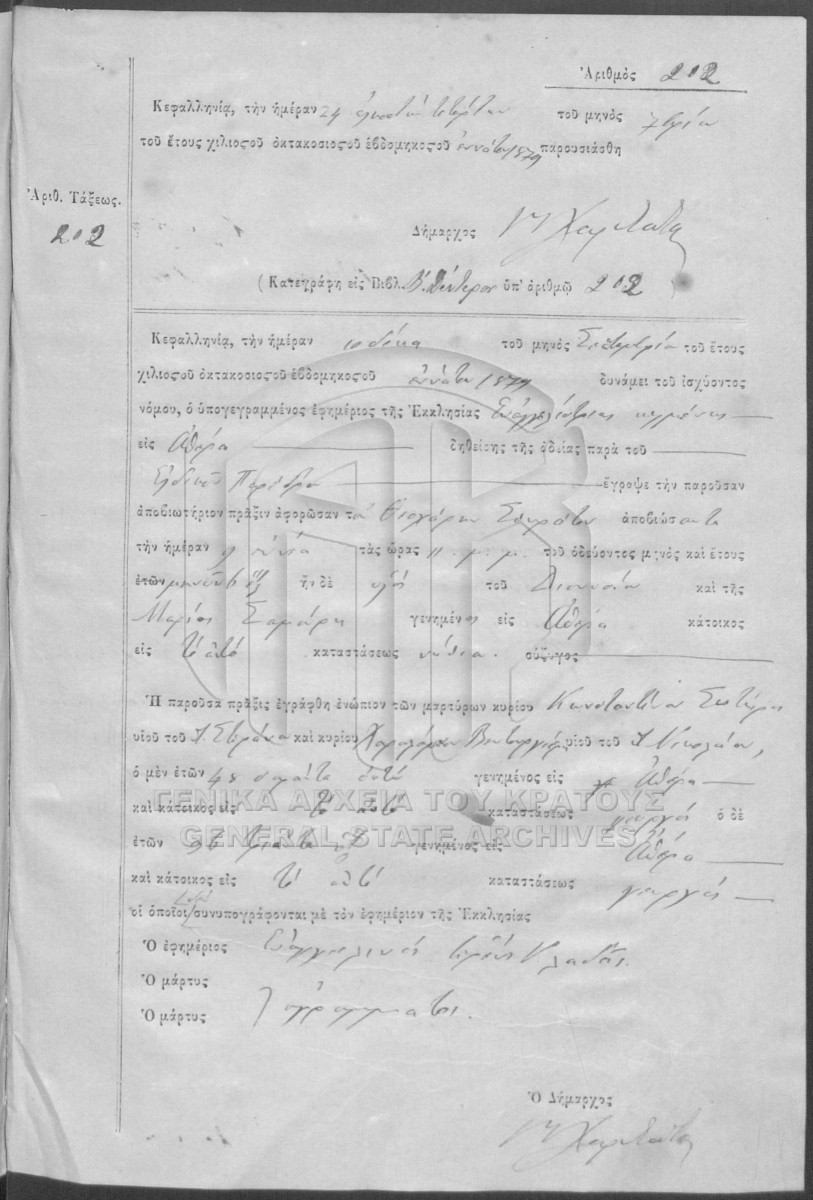 Ἀριθμὸς 202
Κεφαλληνίᾳ, τὴν ἡμέραν 24 εἰκοστὴν τετάρτην τοῦ μηνὸς 7βρίου
τοῦ ἔτους χιλιοςοῦ ὀκτακοσιοςοῦ ἑβδομηκοςοῦ ἐννάτου 1879 παρουσιάσθη
Ἀριθ. Τάξεως.
202
Δήμαρχος
(Κατεγράφη εἰς Βιβλ. Β. δεύτερον ὑπ' ἀριθμῷ 202
Κεφαλληνίᾳ, τὴν ἡμέραν τοῦ μηνὸς Σεπτεμβρίου τοῦ ἔτους
χιλιοςοῦ ὀκτακοσιοςοῦ ἑβδομηκοςοῦ ἐννάτου 1879 δυνάμει τοῦ ἰσχύοντος
νόμου, ὁ ὑπογεγραμμένος ἐφημέριος τῆς Ἐκκλησίας Εὐαγγελιστρίας κειμένης
εἰς Ἀθέρα δηθείσης τῆς ἀδείας παρὰ τοῦ
Εἰδικοῦ Παρέδρου ἔγραψε τὴν παροῦσαν
ἀποβιωτήριον πρᾶξιν ἀφορῶσαν τὸν Θεοχάρην ἀποβιώσαντα
τὴν ἡμέραν 9 ἐννέα τὰς ὥρας 11 μ. μ. τοῦ ὁδεύοντος μηνὸς καὶ ἔτους
ἐτῶν μηνῶν 6 ἓξ ἦν δὲ υἱὸς τοῦ Διονυσίου καὶ τῆς
Μαρίας γενημένος εἰς Ἀθέρα κάτοικος
εἰς τὸ αὐτό καταστάσεως νήπιον. σύζυγος
Ἡ παροῦσα πρᾶξις ἐγράφθη ἐνώπιον τῶν μαρτύρων κυρίου Κωνσταντίνου
υἱοῦ τοῦ καὶ κυρίου Χαραλάμπου υἱοῦ τοῦ Νικολάου,
ὁ μὲν ἐτῶν 48 σαράντα ὀκτώ γενημένος εἰς Ἀθέρα
καὶ κάτοικος εἰς τὸ αὐτό καταστάσεως γεωργός ὁ δὲ
ἐτῶν 36 τριάντα ἓξ γενημένος εἰς Ἀθέρα
καὶ κάτοικος εἰς τὸ αὐτό καταστάσεως γεωργός
οἱ ὁποῖοι συνυπογράφονται μὲ τὸν ἐφημέριον τῆς Ἐκκλησίας
Ὁ ἐφημέριος Εὐαγγελινὸς ἱερεὺς
Ὁ μάρτυς
Ὁ μάρτυς ἀγράμματοι.
Ὁ Δήμαρχος
ΓΕΝΙΚΑ ΑΡΧΕΙΑ ΤΟΥ ΚΡΑΤΟΥΣ
GENERAL STATE ARCHIVES